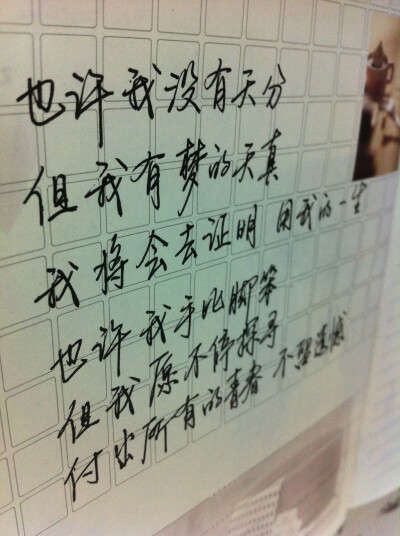 也许我没有天分
但我有梦的天真
我将会去证明 用我的一生
也许我手比脚笨
但我愿不停探寻
付出所有的青春 不留遗憾